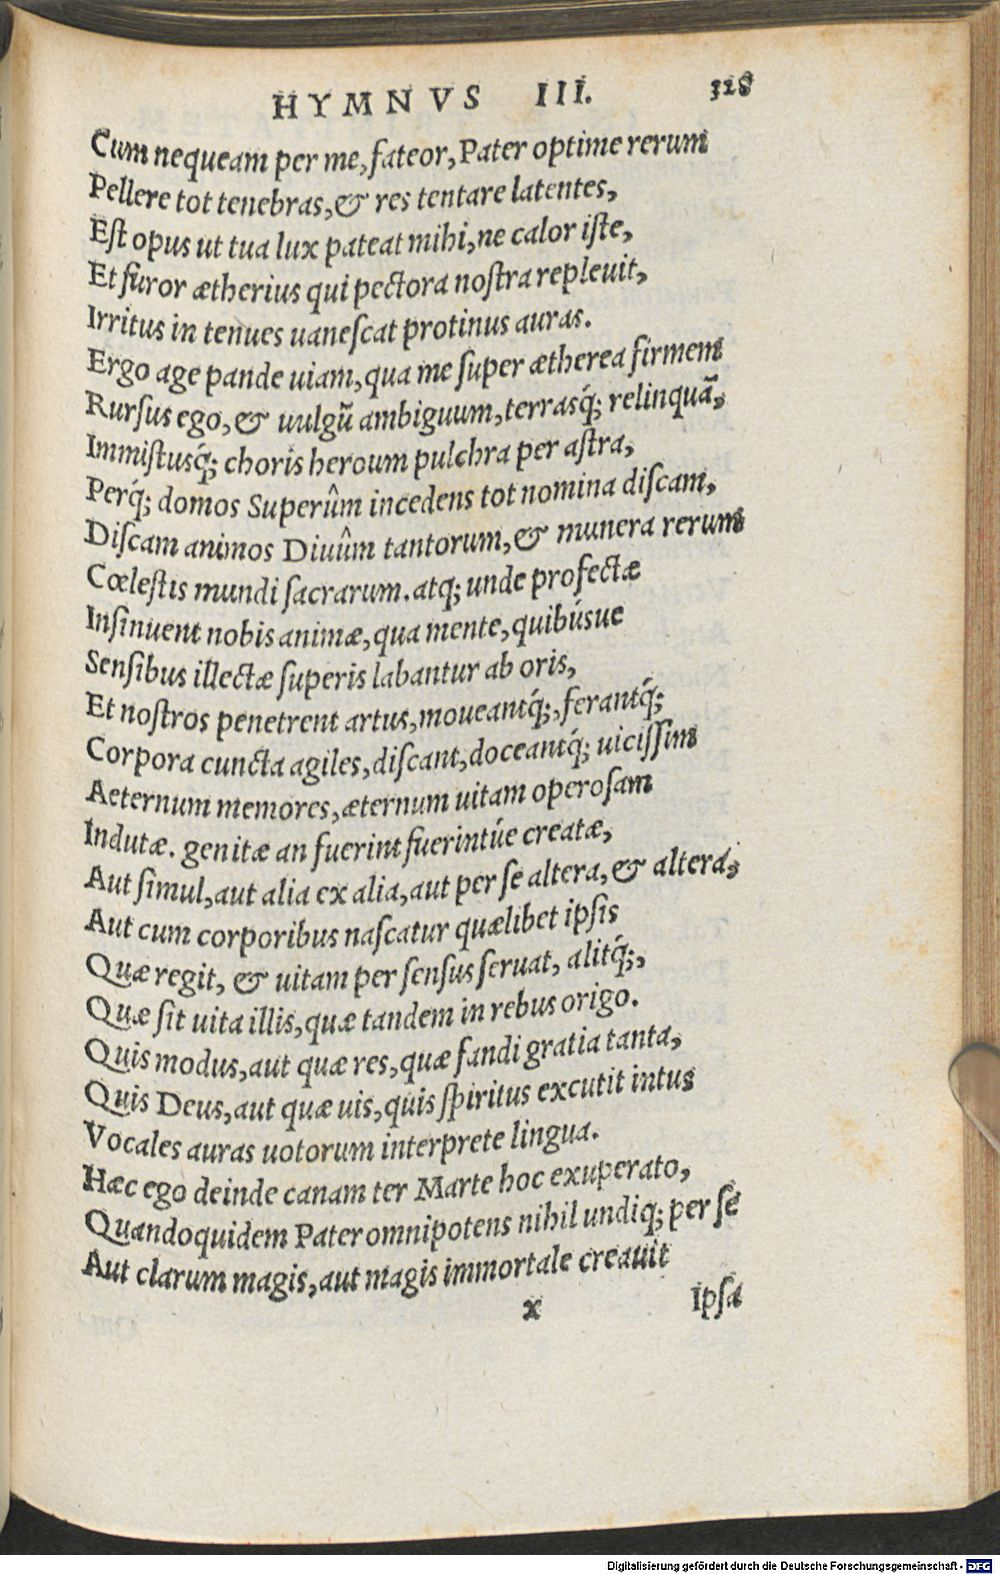 HYMNVS III. 328
Cum nequeam per me, fateor, Pater optime rerum
Pellere tot tenebras, & res tentare latentes,
Eſt opus ut tua lux pateat mihi, ne calor iſte,
Et furor ætherius qui pectora noſtra repleuit,
Irritus in tenues uaneſcat protinus auras.
Ergo age pande uiam, qua me ſuper ætherea firmem
Rurſus ego, & uulgū ambiguum, terrasq́; relinquā,
Immiſtusq́; choris heroum pulchra per aſtra,
Perq́; domos Superûm incedens tot nomina diſcam,
Diſcam animos Diuûm tantorum, & munera rerum
Cœleſtis mundi ſacrarum. atq; unde profectæ
Inſinuent nobis animæ, qua mente, quibúsue
Senſibus illectæ ſuperis labantur ab oris,
Et noſtros penetrent artus, moueantq́;, ferantq́;
Corpora cuncta agiles, diſcant, doceantq́; uiciſſim
Aeternum memores, æternum uitam operoſam
Indutæ. genitæ an fuerint fuerintúe creatæ,
Aut ſimul, aut alia ex alia, aut per ſe altera, & altera,
Aut cum corporibus naſcatur quælibet ipſis
Quæ regit, & uitam per ſenſus ſeruat, alitq́;,
Quæ ſit uita illis, quæ tandem in rebus origo.
Quis modus, aut quæ res, quæ fandi gratia tanta,
Quis Deus, aut quæ uis, quis ſpiritus excutit intus
Vocales auras uotorum interprete lingua.
Hæc ego deinde canam ter Marte hoc exuperato,
Quandoquidem Pater omnipotens nihil undiq; per ſe
Aut clarum magis, aut magis immortale creauit
x Ipſa
Digitalisierung gefördert durch die Deutsche Forschungsgemeinschaft - DFG